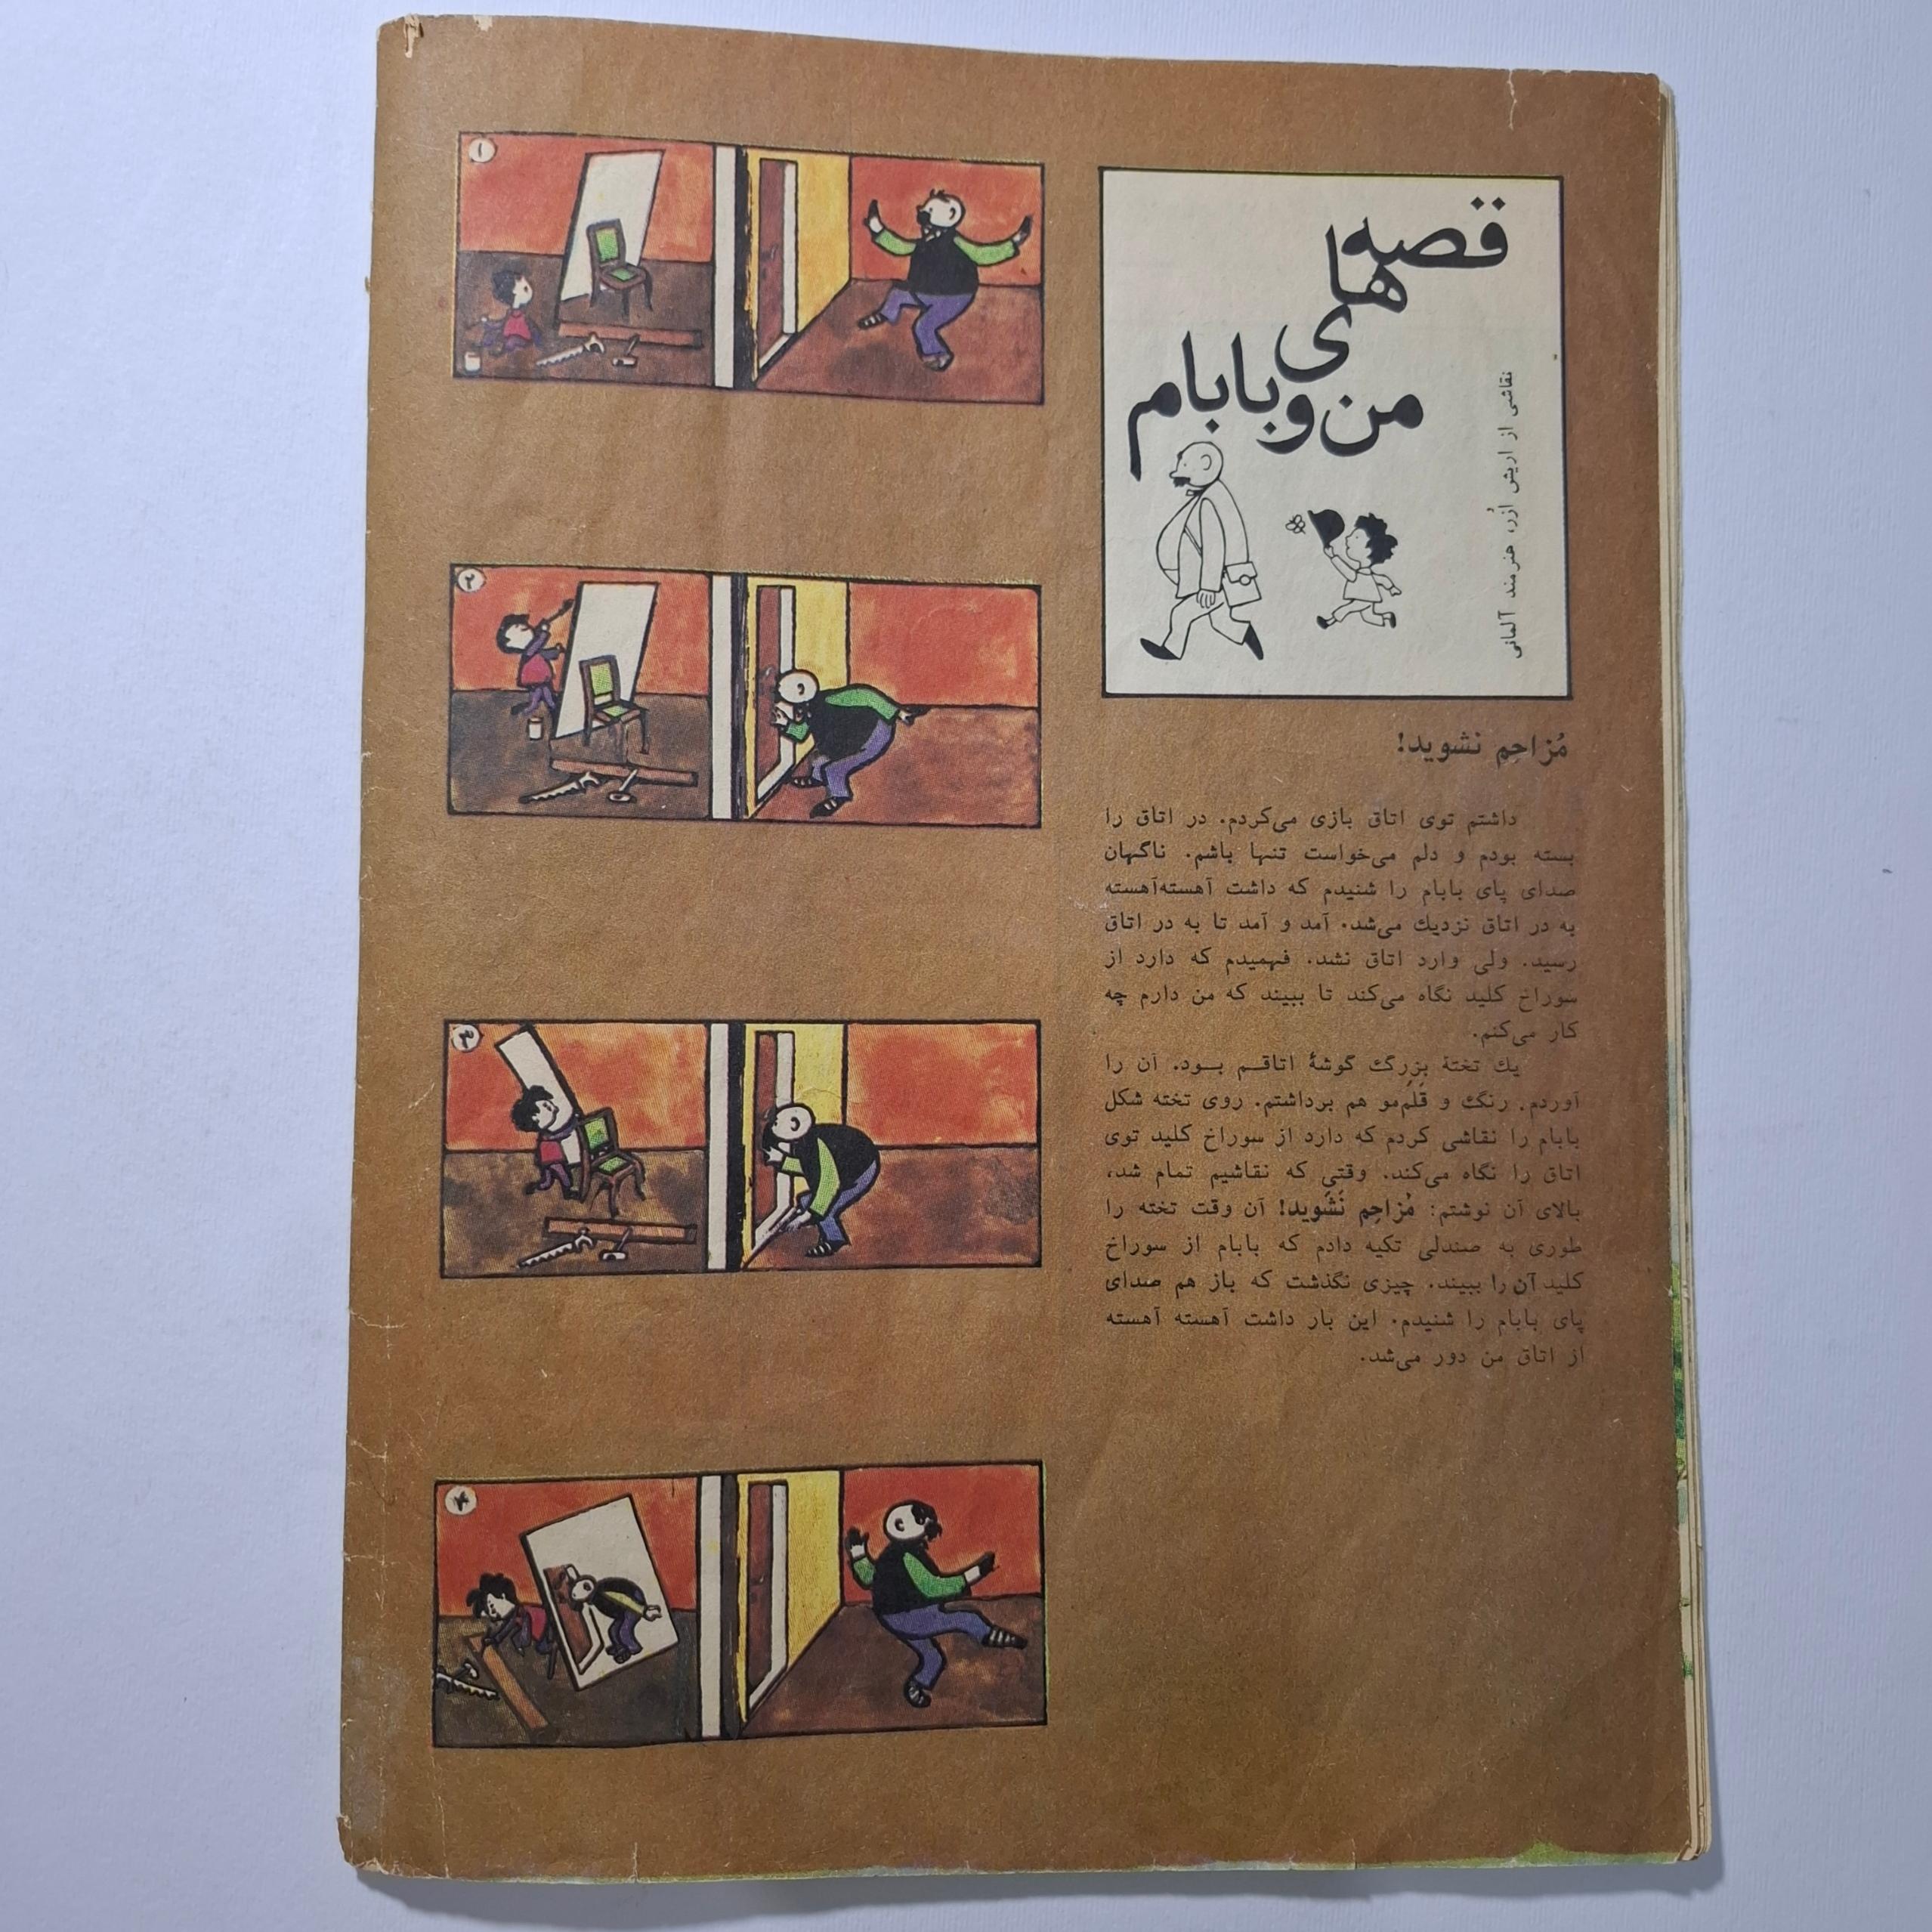 قصه
های
من و بابام
نقاشی از اریش اُزر، هنرمند آلمانی
مُزاحِم نشوید!
داشتم توی اتاق بازی می‌کردم. در اتاق را
بسته بودم و دلم می‌خواست تنها باشم. ناگهان
صدای پای بابام را شنیدم که داشت آهسته‌آهسته
به در اتاق نزدیك می‌شد. آمد و آمد تا به در اتاق
رسید. ولی وارد اتاق نشد. فهمیدم که دارد از
سوراخ کلید نگاه می‌کند تا ببیند که من دارم چه
کار می‌کنم.
یك تختهٔ بزرگ گوشهٔ اتاقم بود. آن را
آوردم. رنگ و قَلَم‌مو هم برداشتم. روی تخته شکل
بابام را نقاشی کردم که دارد از سوراخ کلید توی
اتاق را نگاه می‌کند. وقتی که نقاشیم تمام شد،
بالای آن نوشتم: مُزاحِم نَشَوید! آن وقت تخته را
طوری به صندلی تکیه دادم که بابام از سوراخ
کلید آن را ببیند. چیزی نگذشت که باز هم صدای
پای بابام را شنیدم. این بار داشت آهسته آهسته
از اتاق من دور می‌شد.
۱
۲
۳
۴